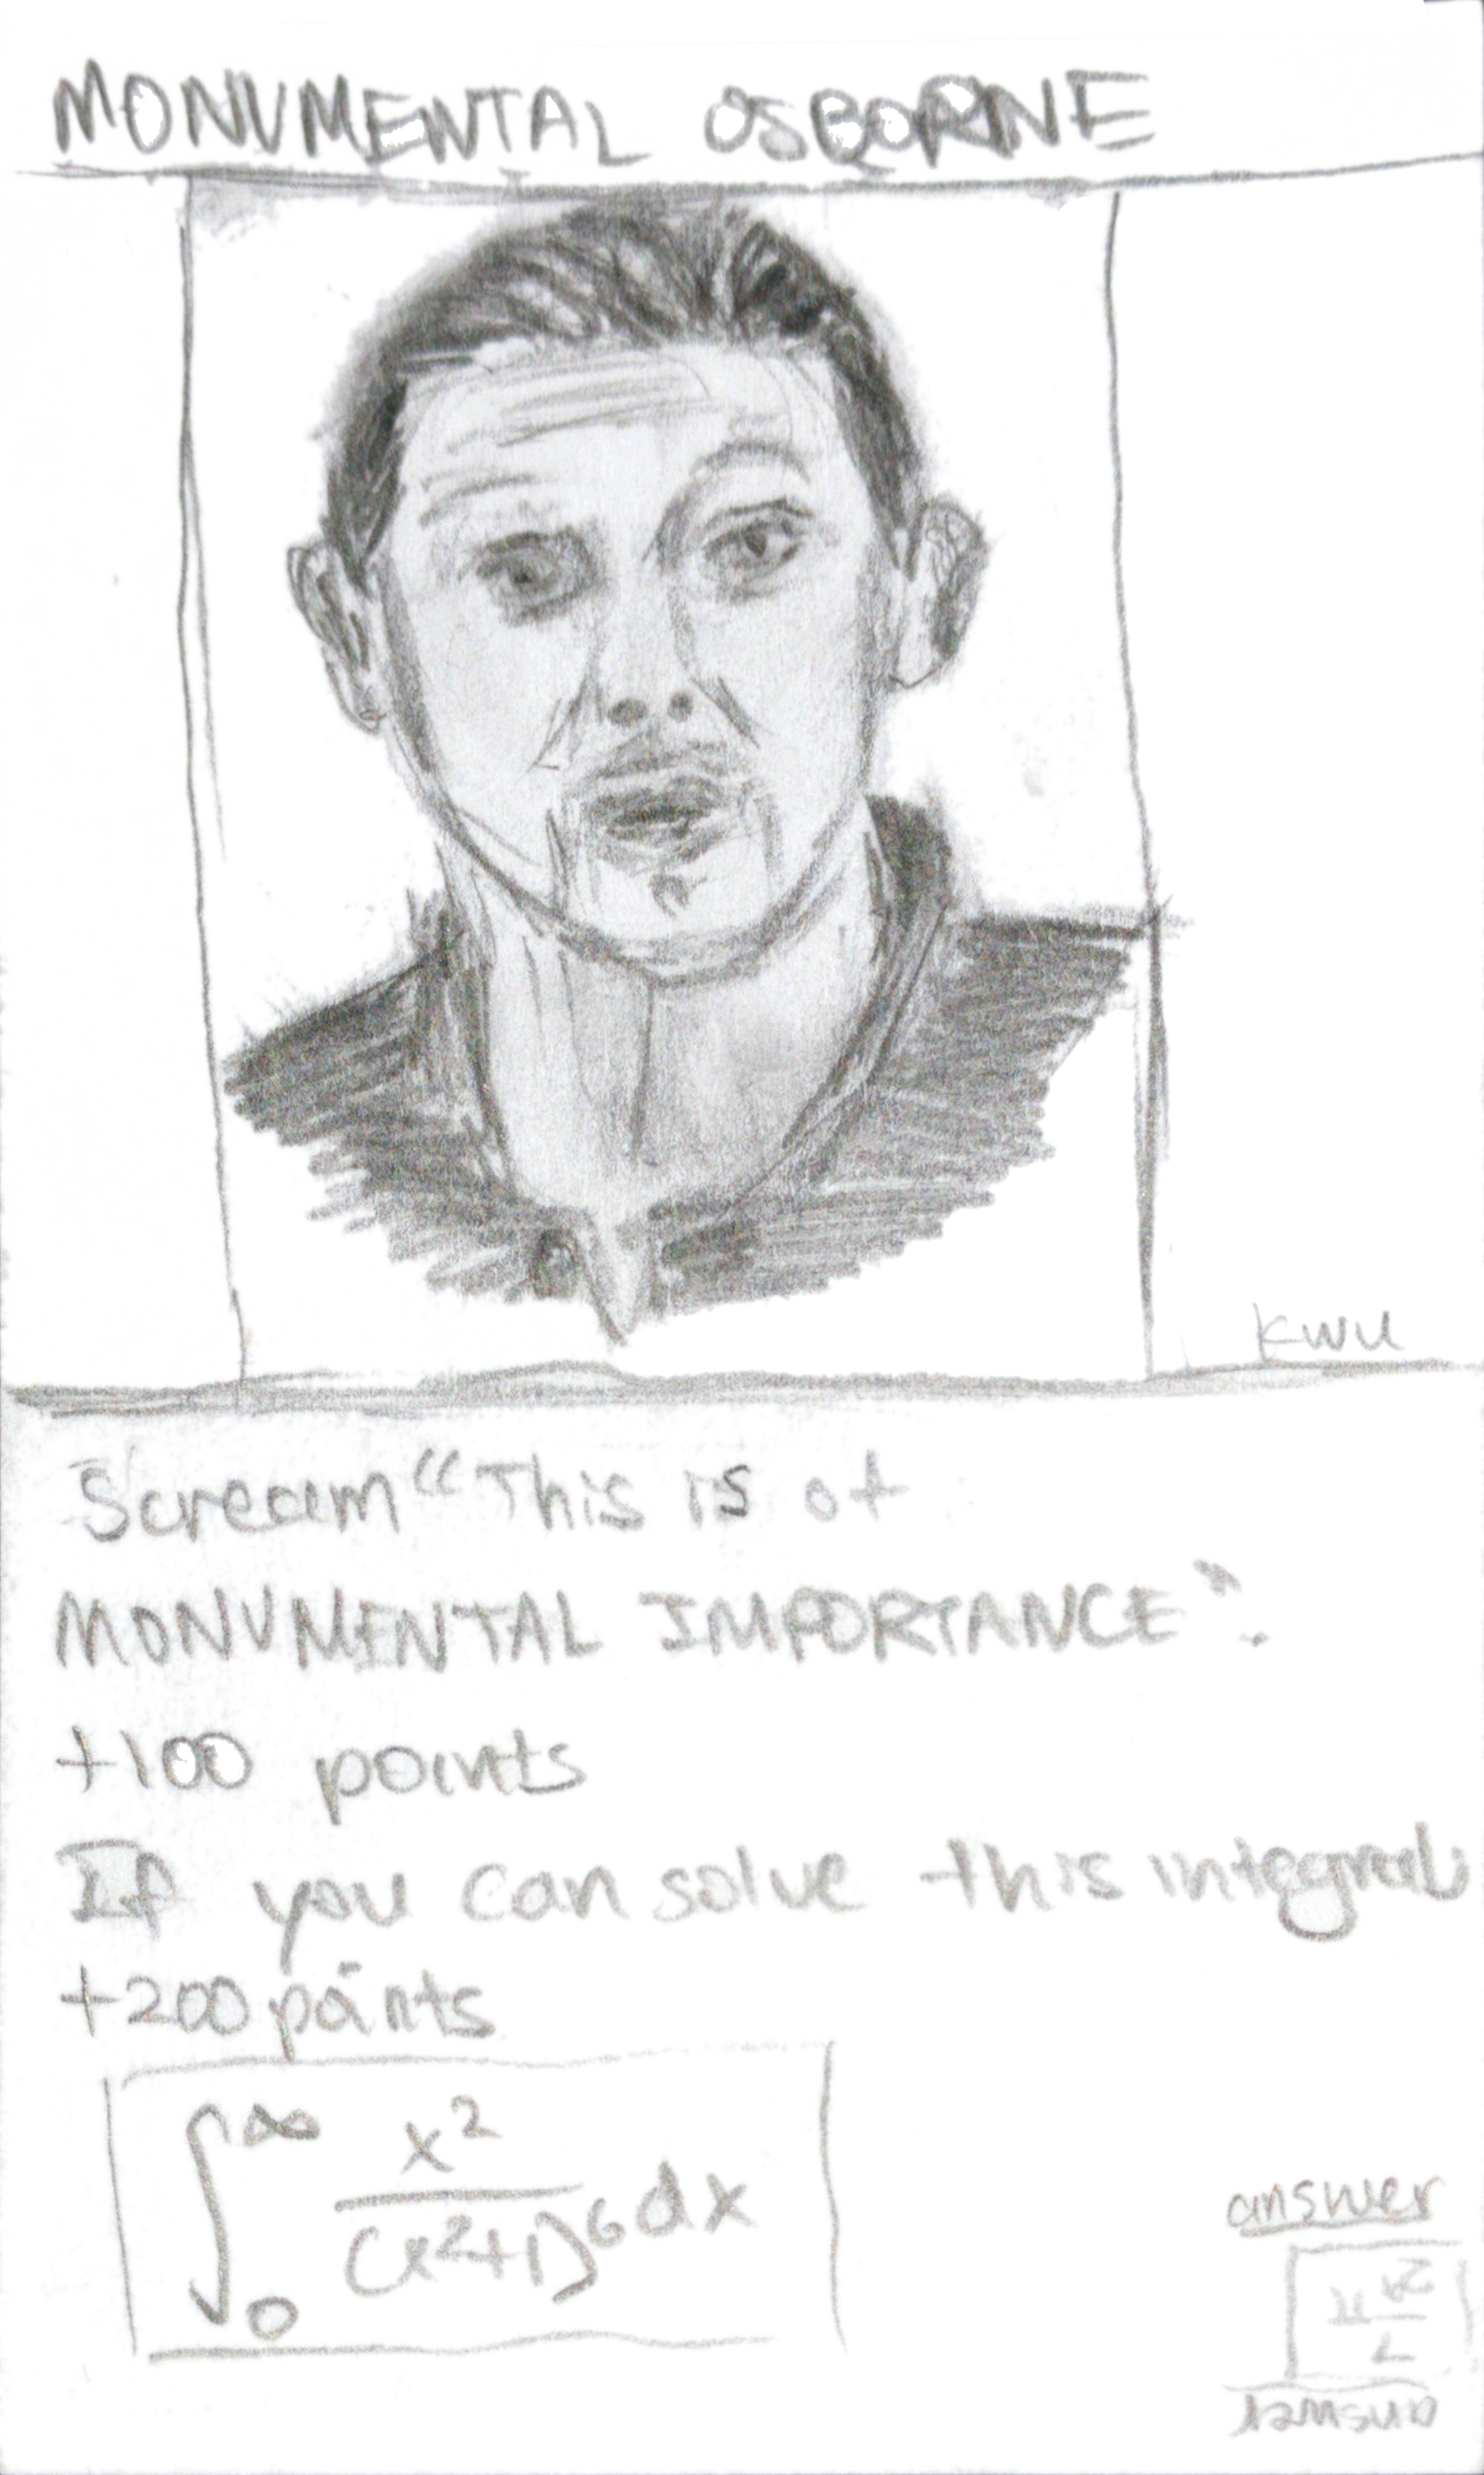 MONUMENTAL OSBORNE
KWU
Scream "This is of
MONUMENTAL IMPORTANCE".
+100 points
If you can solve this integral
+200 points
∫₀^∞ x²/(x²+1)⁶ dx
answer
answer